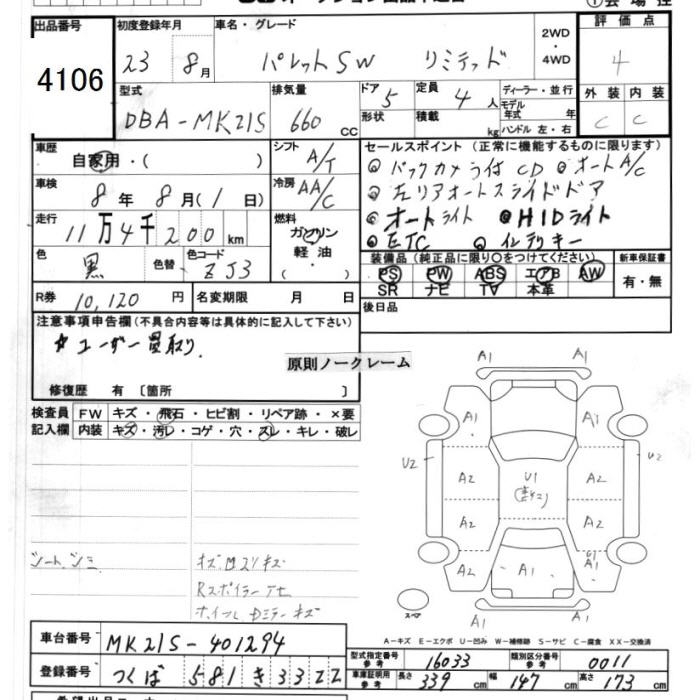 出品番号 4106
初度登録年月 23 8月
車名・グレード パレットSW リミテッド
2WD・4WD
評価点 4
外装 C 内装 C
型式 DBA-MK21S
排気量 660 cc
ドア 5 形状
定員 4人 積載 kg
ディーラー・並行
モデル年式 年
ハンドル 左・右
車歴 自家用・( )
シフト A/T
車検 8年 8月(1日)
冷房 AA/C
走行 11万4千200 km
燃料 ガソリン 軽油 ・( )
色 黒 色替 色コード ZJ3
R券 10,120円 名変期限 月 日
セールスポイント (正常に機能するものに限ります)
◎バックカメラ付 CD ◎オートA/C
◎左リアオートスライドドア
◎オートライト ◎HIDライト
◎ETC ◎インテリキー
装備品(純正品に限り○をつけてください) 新車保証書
PS PW ABS エアB AW 有・無
SR ナビ TV 本革
後日品
注意事項申告欄(不具合内容等は具体的に記入して下さい)
☆ユーザー買取り
原則ノークレーム
修復歴 有〔箇所 〕
検査員記入欄 FW キズ・飛石・ヒビ割・リペア跡・×要
内装 キズ・汚レ・コゲ・穴・スレ・キレ・破レ
A1 A1
A1 A1
U2 U2
A2 U1 A2
A2 A2
A2 A1 U1 A1
A1 A1
スペア
シート シミ
Rスポイラー
A-キズ E-エクボ U-凹み W-補修跡 S-サビ C-腐食 XX-交換済
車台番号 MK21S-401294
登録番号 つくば 581 き 3322
型式指定番号 参考 16033 類別区分番号 参考 0011
車庫証明用 参考 長さ 339 cm 幅 147 cm 高さ 173 cm